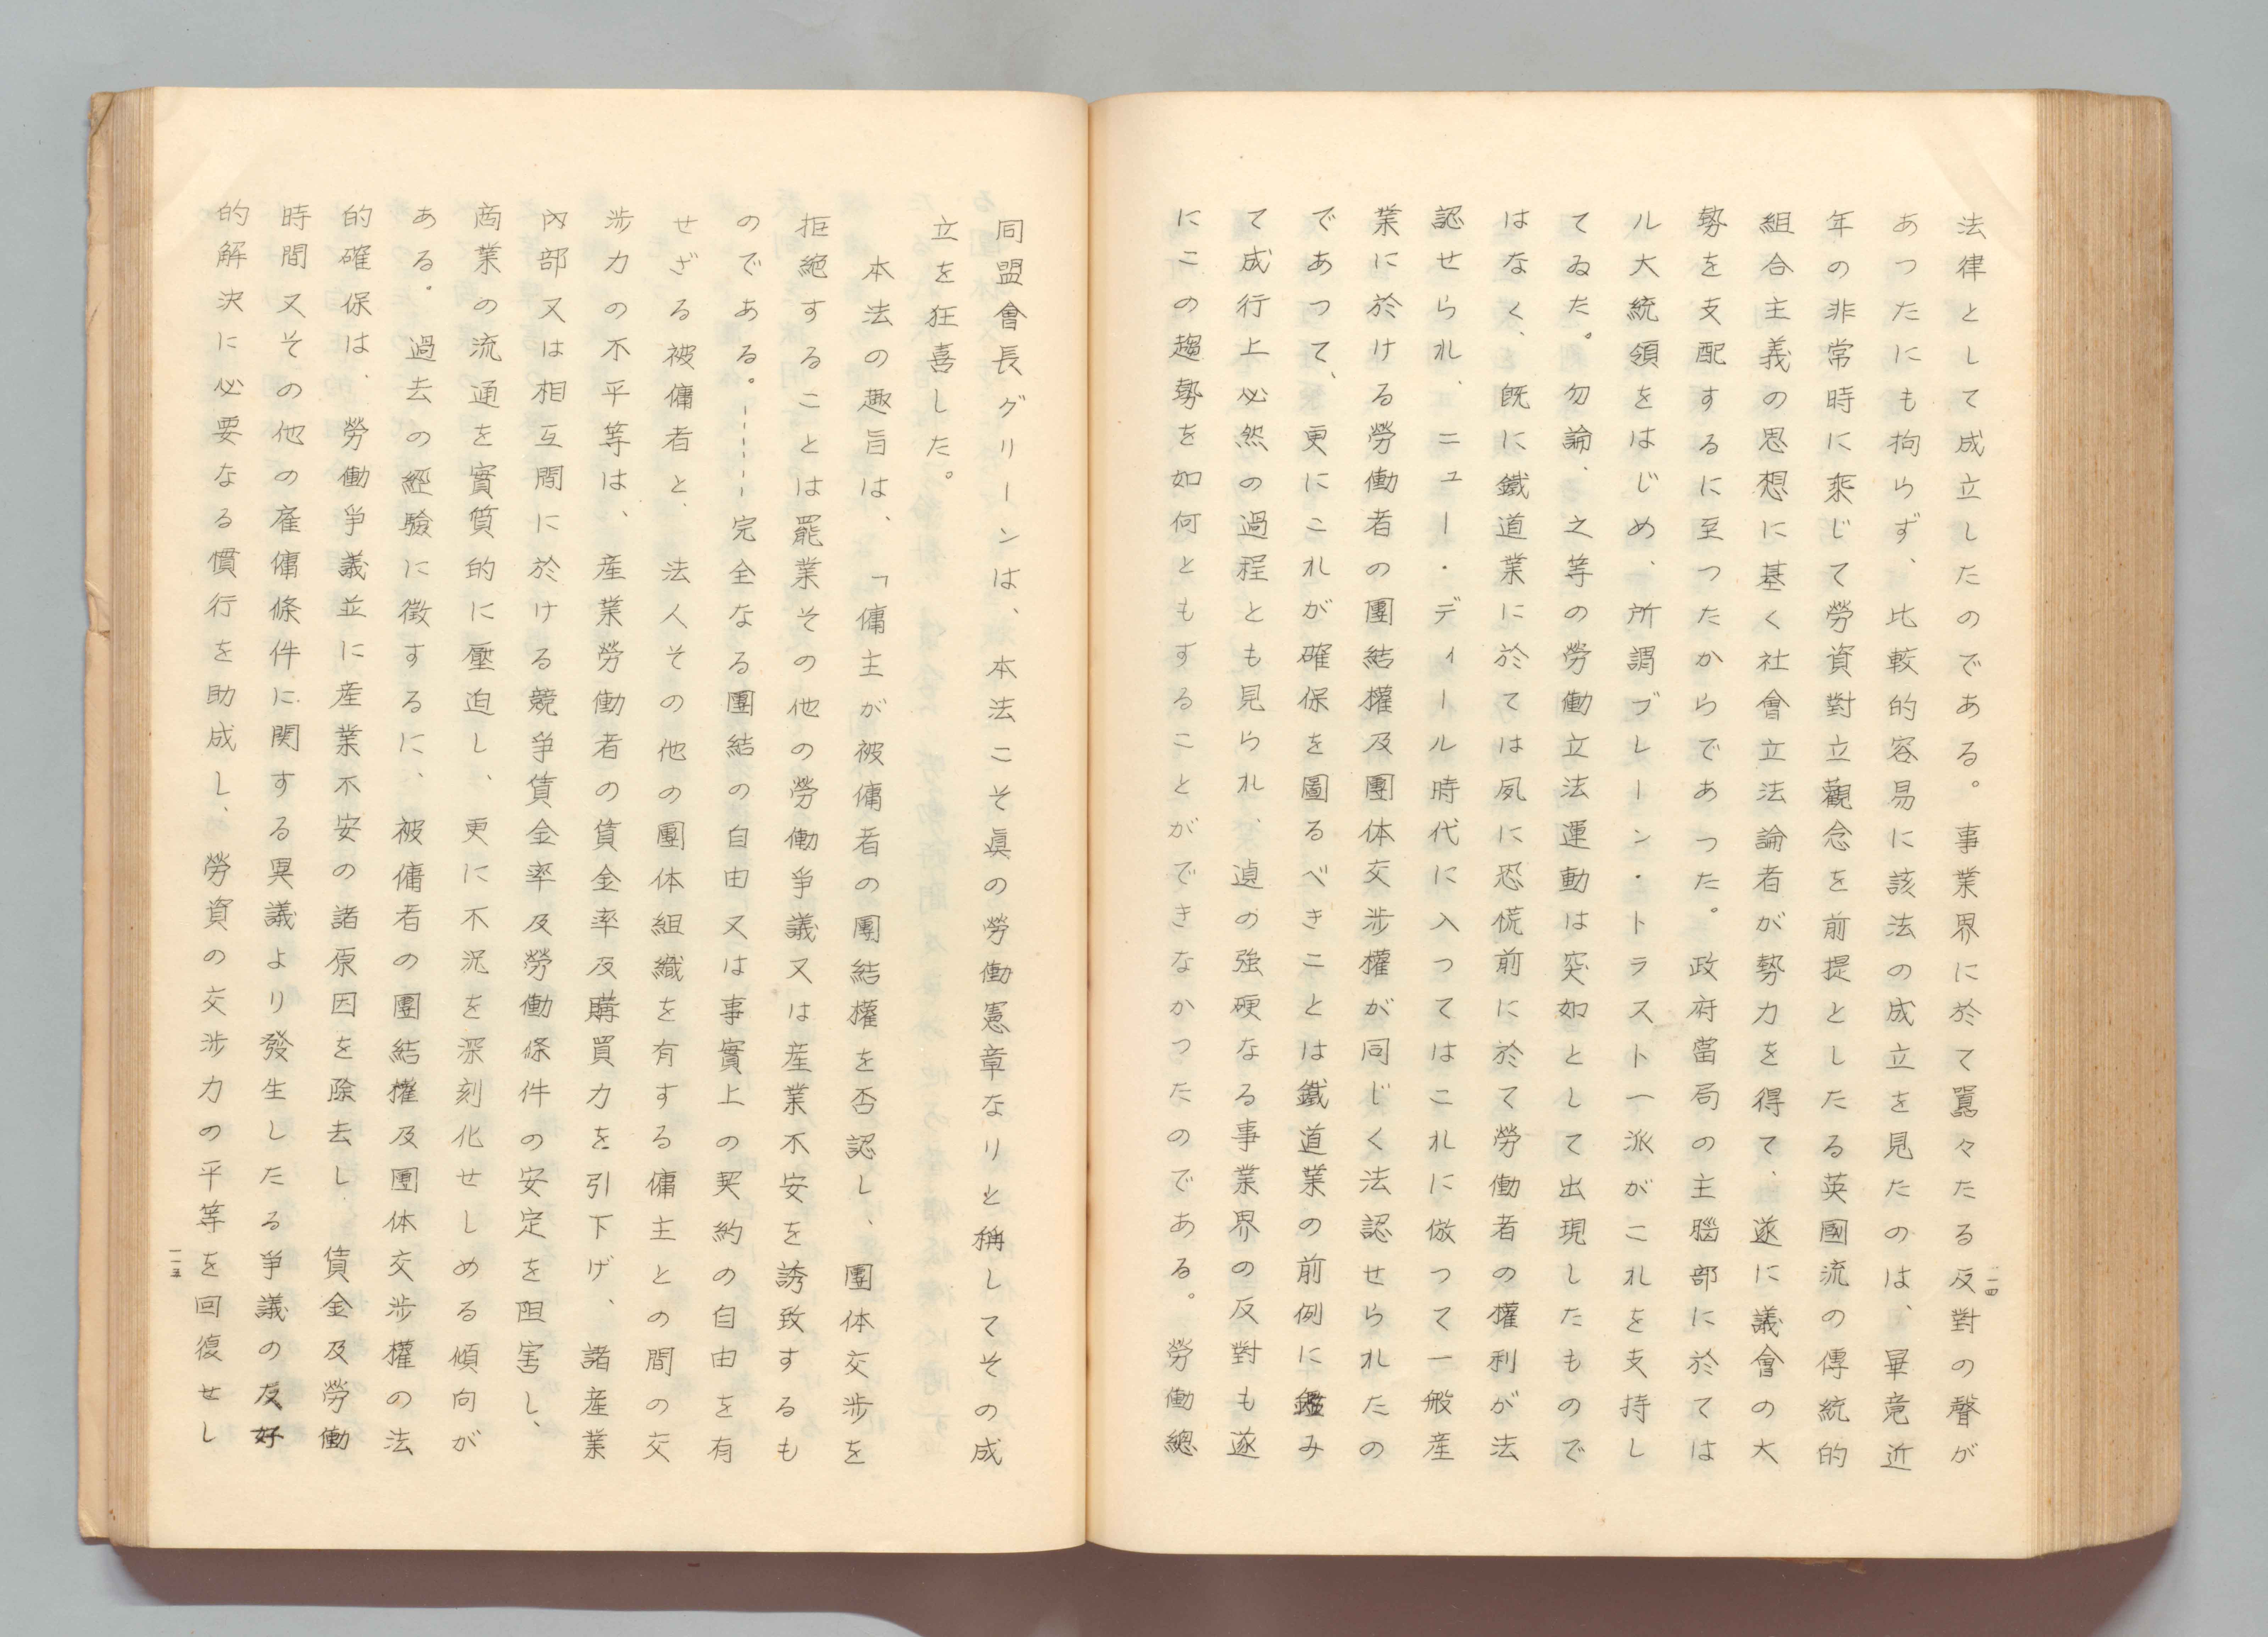 法律として成立したのである。事業界に於て囂々たる反對の聲が
あつたにも拘らず、比較的容易に該法の成立を見たのは、畢竟近
年の非常時に乘じて勞資對立觀念を前提としたる英國流の傳統的
組合主義の思想に基く社會立法論者が勢力を得て、遂に議會の大
勢を支配するに至つたからであつた。政府當局の主腦部に於ては
ル大統領をはじめ、所謂ブレーン・トラスト一派がこれを支持し
てゐた。勿論、之等の勞働立法運動は突如として出現したもので
はなく、既に鐵道業に於ては夙に恐慌前に於て勞働者の權利が法
認せられ、ニュー・ディール時代に入つてはこれに倣つて一般産
業に於ける勞働者の團結權及團体交渉權が同じく法認せられたの
であつて、更にこれが確保を圖るべきことは鐵道業の前例に鑑み
て成行上必然の過程とも見られ、遉の強硬なる事業界の反對も遂
にこの趨勢を如何ともすることができなかつたのである。勞働總
一四
同盟會長グリーンは、本法こそ眞の勞働憲章なりと稱してその成
立を狂喜した。
本法の趣旨は、「傭主が被傭者の團結權を否認し、團体交渉を
拒絶することは罷業その他の勞働爭議又は産業不安を誘致するも
のである。-----完全なる團結の自由又は事實上の契約の自由を有
せざる被傭者と、法人その他の團体組織を有する傭主との間の交
渉力の不平等は、産業勞働者の賃金率及購買力を引下げ、諸産業
内部又は相互間に於ける競爭賃金率及勞働條件の安定を阻害し、
商業の流通を實質的に壓迫し、更に不況を深刻化せしめる傾向が
ある。過去の經驗に徴するに、被傭者の團結權及團体交渉權の法
的確保は、勞働爭議並に産業不安の諸原因を除去し、賃金及勞働
時間又その他の雇傭條件に関する異議より發生したる爭議の友好
的解決に必要なる慣行を助成し、勞資の交渉力の平等を回復せし
一五